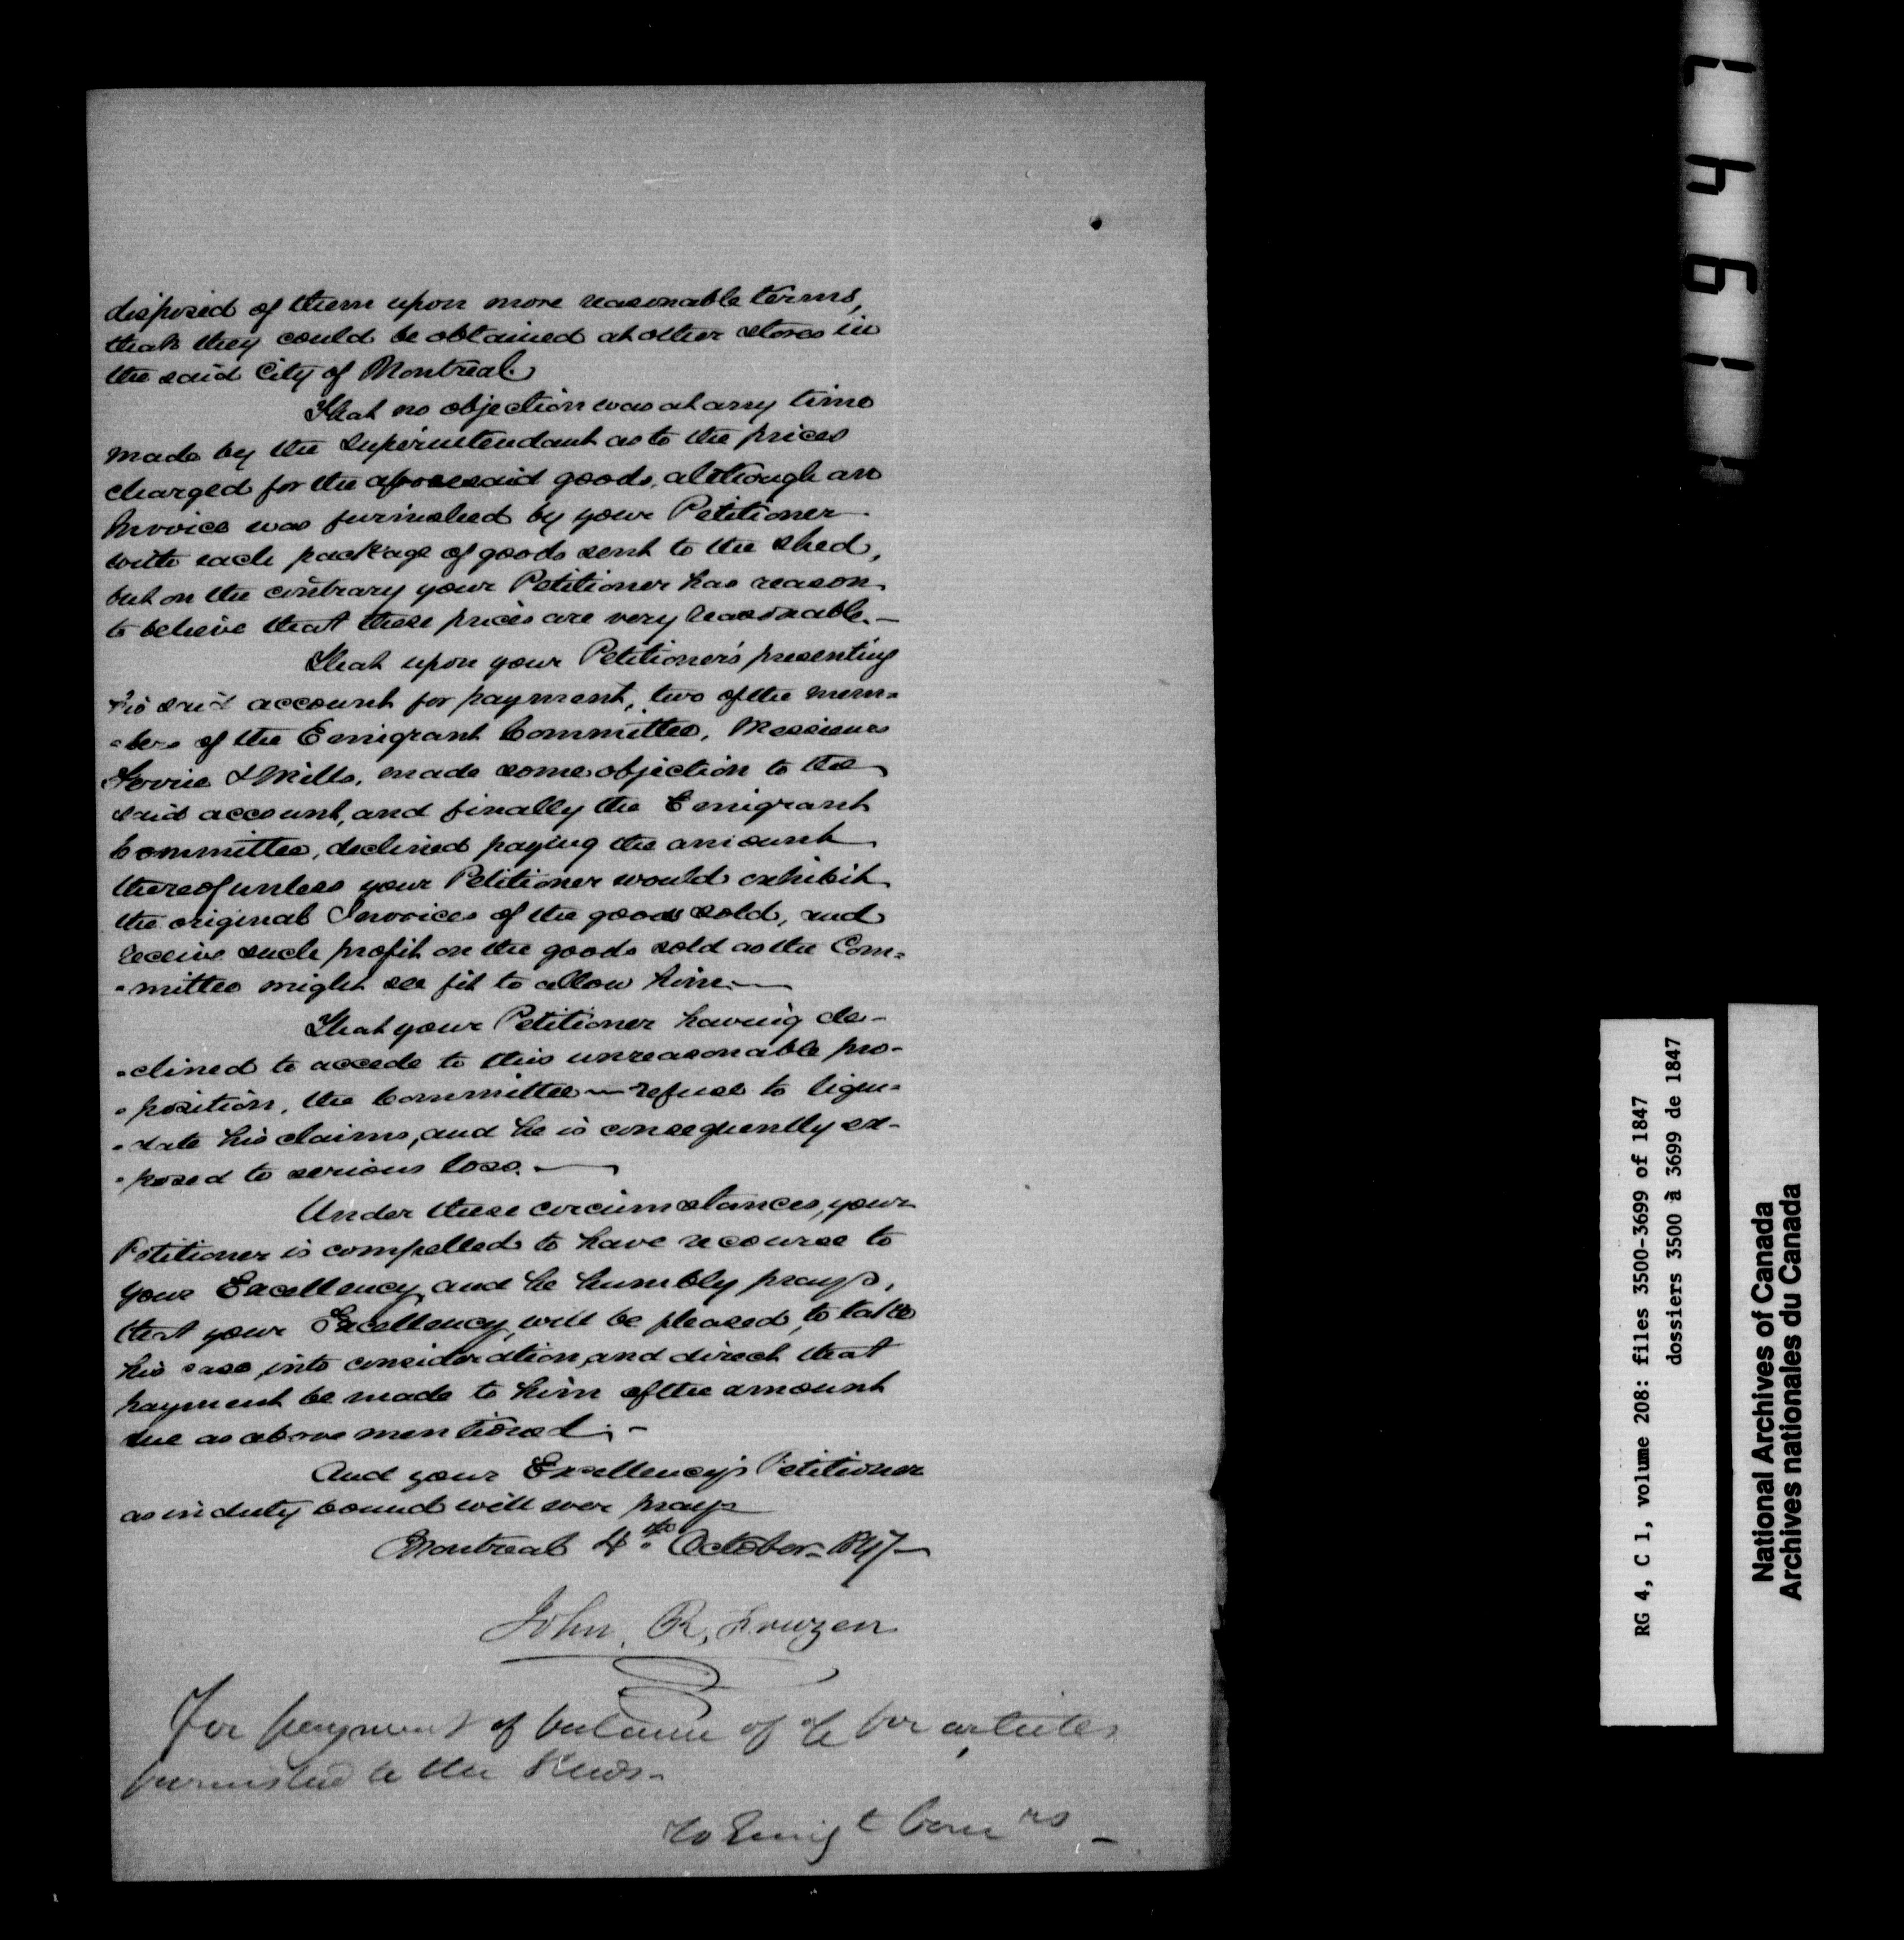 disposed of them upon more reasonable terms,
than they could be obtained at other stores in
the said City of Montreal.
That no objection was at any time
made by the Superintendant as to the prices
charged for the aforesaid goods, although an
Invoice was furnished by your Petitioner
with each package of goods sent to the shed,
but on the contrary your Petitioner has reason
to believe that these prices are very reasonable.—
That upon your Petitioner's presenting
his said account for payment, two of the mem=
=bers of the Emigrant Committee, Messieurs
& Mills, made some objection to the
said account, and finally the Emigrant
Committee, declined paying the amount
thereof unless your Petitioner would exhibit
the original Invoices of the goods sold, and
receive such profit on the goods sold as the Com=
=mittee might see fit to allow him.—
That your Petitioner having de-
=clined to accede to this unreasonable pro-
=position, the Committee — refuse to liqui=
=date his claims, and he is consequently ex-
=posed to serious loss.—
Under these circumstances, your
Petitioner is compelled to have recourse to
your Excellency, and he humbly prays,
that your Excellency, will be pleased, to take
his case, into consideration, and direct that
payment be made to him of the amount
due as above mentioned.-
And your Excellency's Petitioner
as in duty bound will ever pray
Montreal 4th October- 1847-
John. R,
For payment of balance of a/c for articles
furnished to the Sheds-
To Emigt Comrs -
1 6 4 7
RG 4, C 1, volume 208: files 3500-3699 of 1847
dossiers 3500 à 3699 de 1847
National Archives of Canada
Archives nationales du Canada